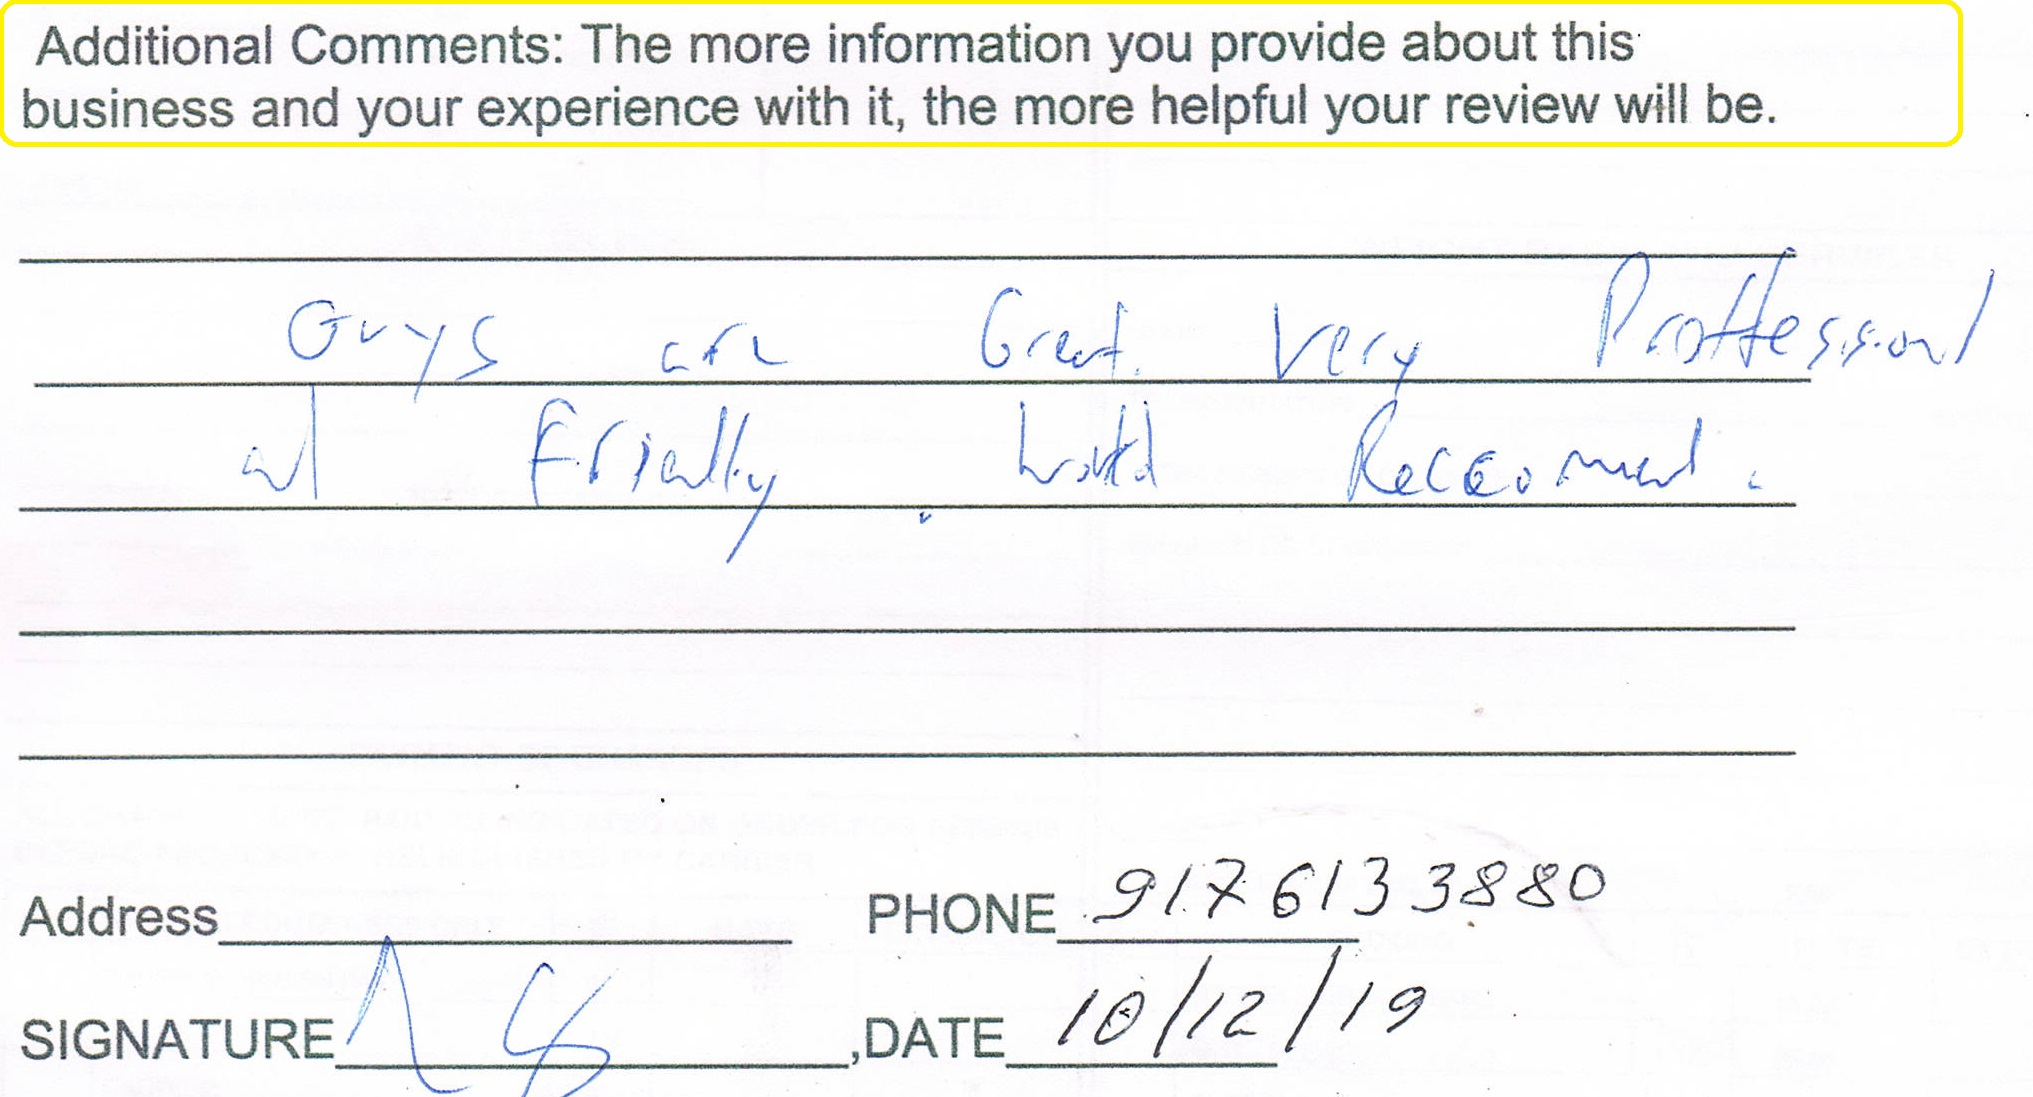 Additional Comments: The more information you provide about this
business and your experience with it, the more helpful your review will be.
Guys are Great. Very Proffessional
and Friendly. Would Reccomend.
Address PHONE 9176133880
SIGNATURE ,DATE 10/12/19